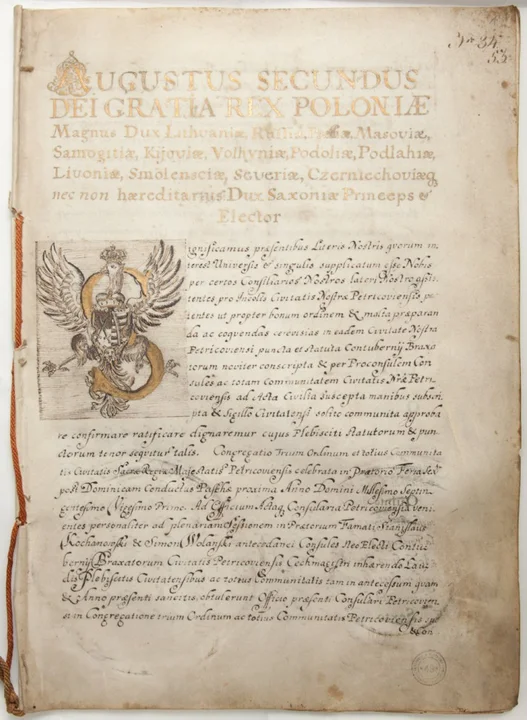 AUGUSTUS SECUNDUS
DEI GRATIA REX POLONIÆ
Magnus Dux Lithvaniæ, Rusiæ, Masoviæ,
Samogitiæ, Kijoviæ, Volhyniæ, Podoliæ, Podlahiæ,
Livoniæ, Smolensciæ, Severiæ, Czerniechoviæq
nec non hæreditarius Dux Saxoniæ Princeps &
Elector
Significamus præsentibus Literis Nostris qvorum in
terest Universis & singulis supplicatum esse Nobis
per certos Consiliarios Nostros lateri Nostro assis
tentes, pro Incolis Civitatis Nostræ Petricoviensis pe
tentes ut propter bonum ordinem & malta præparan
da ac coqvendas cerevisias in eadem Civitate Nostra
Petricoviensi puncta et statuta Contubernij Braxa
torum noviter conscripta & per Proconsulem Con
sules ac totam Communitatem Civitatis Nræ Petri
coviensis ad Acta Civilia suscepta manibus subscri
pta & Sigillo Civitatensi solito communita approba
re confirmare ratificare dignaremur cujus Plebisciti statutorum & pun
ctorum tenor seqvitur talis. Congregatio Trium Ordinum et totius Communita
tis Civitatis Sacræ Regiæ Majestatis Petricoviensis celebrata in Prætorio Feria
post Dominicam Conductus Paschæ proxima Anno Domini Millesimo Septin
gentesimo Vigesimo Primo. Ad Officium Actaq Consularia Petricoviensia veni
entes personaliter ad plenariam Sessionem in Prætorium Famati Stanislaus
Kochanowski & Simon Wolanski antecedanei Consules Electi Contu
bernij Braxatorum Civitatis Petricoviensis Cechmagistri inhærendo Lau
dis Plebiscitis Civitatensibus ac totius Communitatis tam in antecessum qvam
& Anno præsenti sancitis, obtulerunt Officio præsenti Consulari Petricovien
si in Congregatione trium Ordinum ac totius Communitatis Petricoviensis
& con